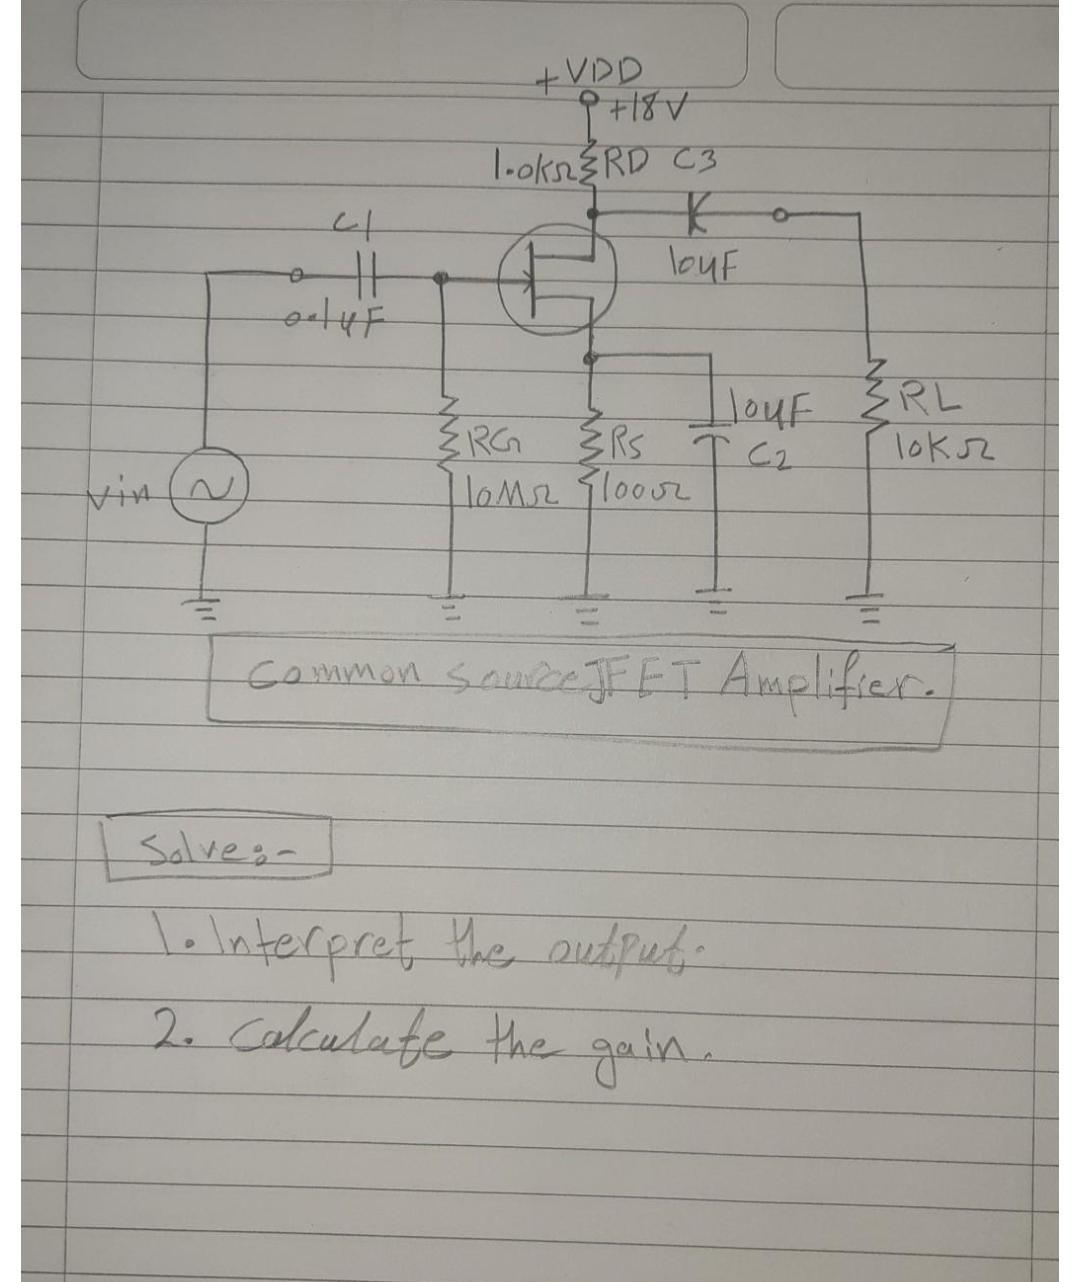 +VDD
+18V
1.0kΩ RD C3
C1
10uF
0.1uF
10uF
RL
RG
RS
C2
10KΩ
vin
10MΩ
100Ω
Common Source JFET Amplifier.
Solve:-
1. Interpret the output.
2. Calculate the gain.